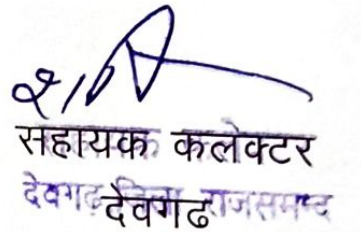 सहायक कलेक्टर
देवगढ जिला राजसमन्द
देवगढ